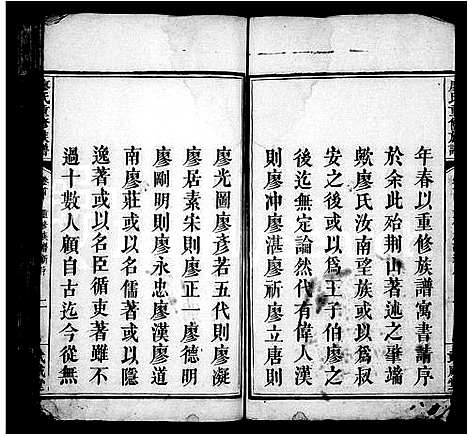 年春以重修族譜寓書請序
於余此殆荆山著述之肇端
歟廖氏汝南望族或以爲叔
安之後或以爲王子伯廖之
後迄無定論然代有偉人漢
則廖沖廖湛廖祈廖立唐則
廖光圖廖彥若五代則廖凝
廖居素宋則廖正一廖德明
廖剛明則廖永忠廖漢廖道
南廖莊或以儒著或以隱
逸著或以名臣循吏著雖不
過十數人顧自古迄今從無
廖氏重修族譜